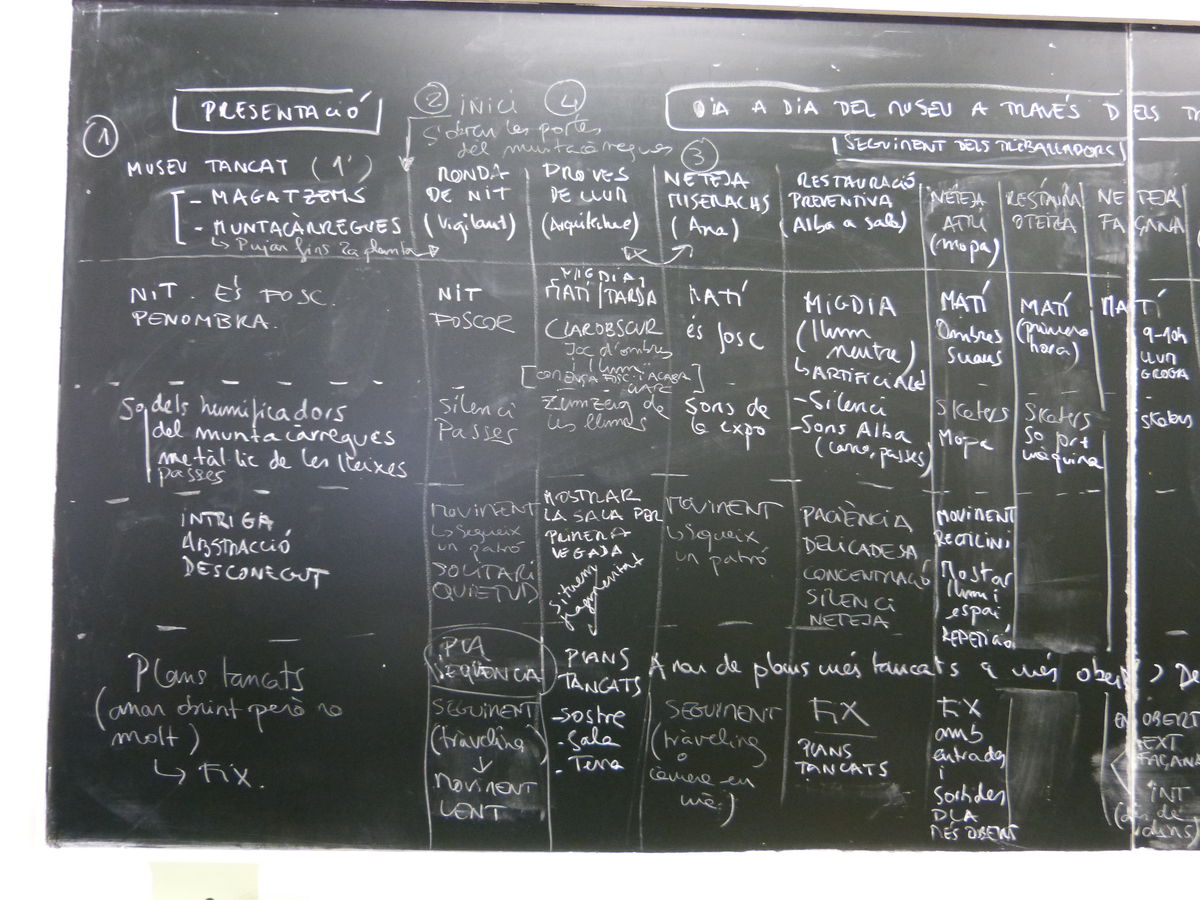 PRESENTACIÓ
1
MUSEU TANCAT (1')
- MAGATZEMS
- MUNTACÀRREGUES
↳ Pujar fins 2a planta
2 INICI
S'obren les portes
del muntacàrregues
4
3
DIA A DIA DEL MUSEU A TRAVÉS DELS
SEGUIMENT DELS TREBALLADORS
RONDA
DE NIT
(Vigilant)
PROVES
DE LLUM
(Arquitecture)
NETEJA
MISERACHS
(Ana)
RESTAURACIÓ
PREVENTIVA
(Alba a sala)
NETEJA
ATRI
(mopa)
RESTAURA
OTEIZA
NETEJA
FAÇANA
NIT. ÉS FOSC.
PENOMBRA.
NIT
FOSCOR
MIGDIA,
MATÍ | TARDA
CLAROBSCUR
Joc d'ombres
i llum
[COMENÇA FOSC I ACABA
CLAR]
MATÍ
és fosc
MIGDIA
(llum
neutre)
↳ ARTIFICIAL
MATÍ
Ombres
suaus
MATÍ
(primera
hora)
MATÍ
9-10h
LLUM
GROGA
So dels humificadors
del muntacàrregues
metàl·lic de les lleixes
passes
Silenci
Passes
Zumzeig de
les llums
Sons de
la expo
- Silenci
- Sons Alba
(carro, passes)
Skaters
Mopa
Skaters
So pot
màquina
skaters
INTRIGA
ABSTRACCIÓ
DESCONEGUT
MOVIMENT
↳ Segueix
un patró
SOLITARI
QUIETUD
MOSTRAR
LA SALA PER
PRIMERA
VEGADA
Situem
fragmentat
MOVIMENT
↳ Segueix
un patró
PACIÈNCIA
DELICADESA
CONCENTRACIÓ
SILENCI
NETEJA
MOVIMENT
RECTILINI
Mostrar
llum i
espai
REPETICIÓ
Plans tancats
(anar obrint però no
molt)
↳ FIX.
PLA
SEQÜÈNCIA
SEGUIMENT
(tràveling)
↓
MOVIMENT
LENT
PLANS
TANCATS
- Sostre
- Sala
- Terra
Anar de plans més tancats a més oberts
SEGUIMENT
(tràveling
o
càmera en
mà)
FIX
PLANS
TANCATS
FIX
amb
entrades
i
sortides
PLA
MÉS OBERT
OBERT
EXT
FAÇANA
INT
(des de
dins)